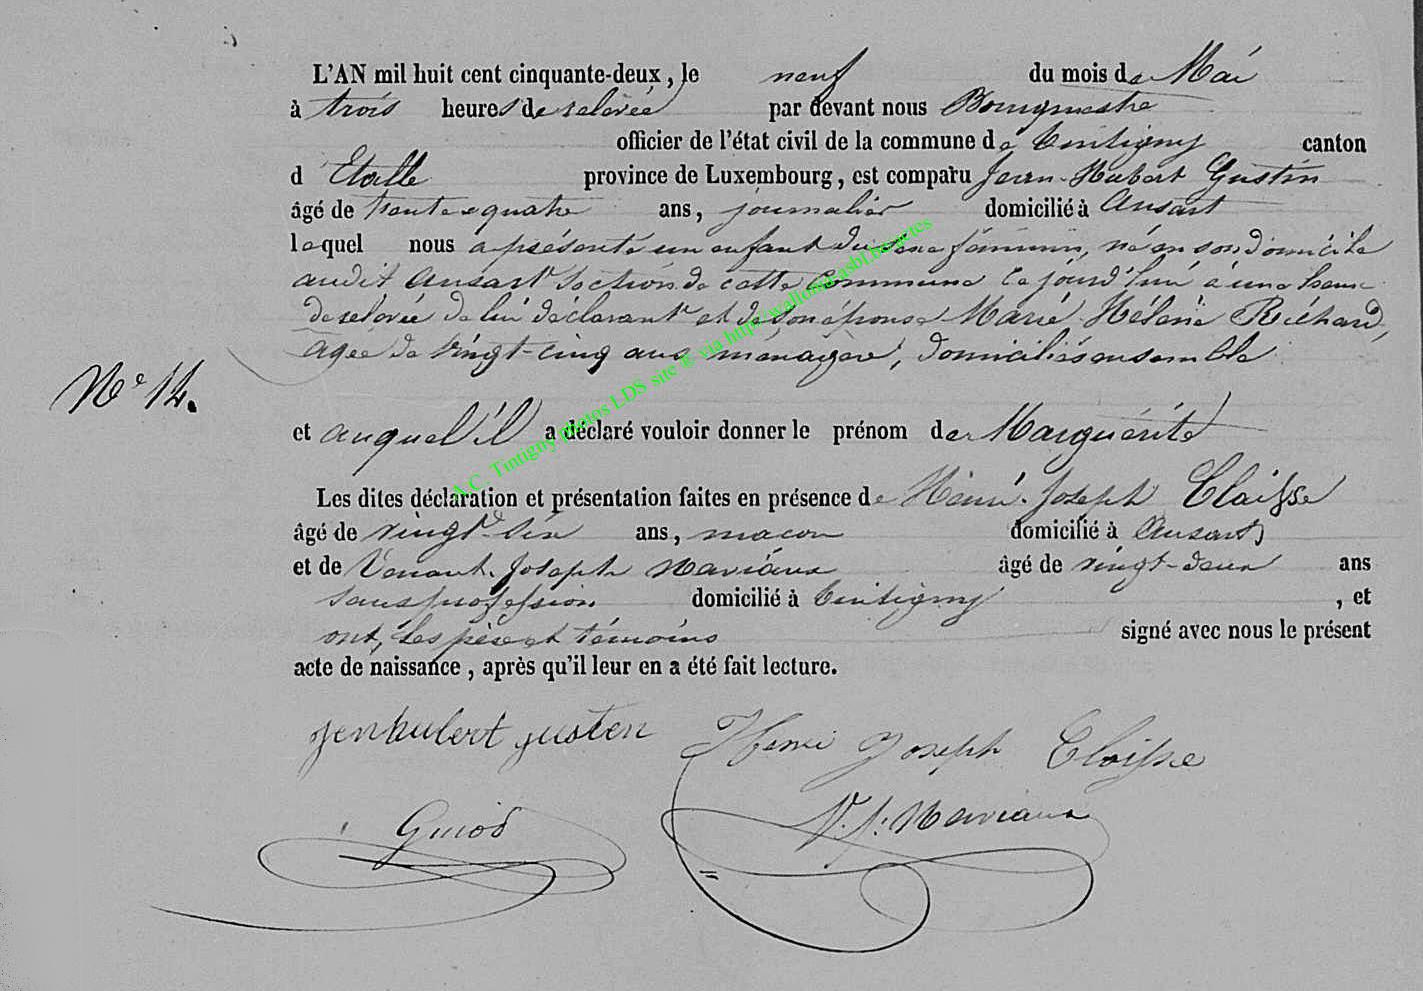 L'AN mil huit cent cinquante-deux, le neuf du mois de Mai
à trois heures de relevée par devant nous Bourgmestre
officier de l'état civil de la commune de Tintigny canton
d Etalle province de Luxembourg, est comparu Jean-Hubert Gustin
âgé de trente quatre ans, journalier domicilié à Ansart
lequel nous a présenté un enfant du sexe féminin, né en son domicile
audit Ansart section de cette commune ce jourd'hui à une heure
de relevée de lui déclarant et de son épouse Marie Hélène Richard,
agée de vingt-cinq ans ménagère, domiciliés ensemble
N° 14.
et auquel il a déclaré vouloir donner le prénom de Marguerite
Les dites déclaration et présentation faites en présence de Henri-Joseph Claisse
âgé de vingt-six ans, macon domicilié à Ansart,
et de Venant-Joseph Maviaux âgé de vingt-deux ans
sans profession domicilié à Tintigny , et
ont, les père et témoins signé avec nous le présent
acte de naissance, après qu'il leur en a été fait lecture.
jenhubert gusten Henri Joseph Cloisse
Guiod V. J. Maviaux
A.C. Tintigny photos LDS site © via http://wallonica.asbl.be/actes